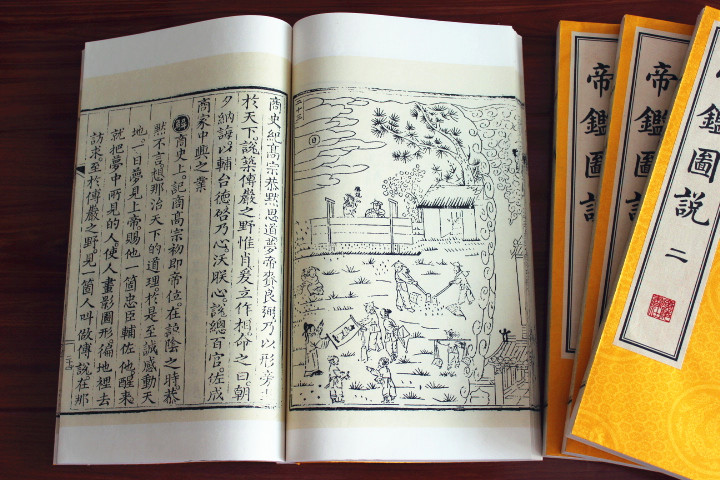 商史紀髙宗恭默思道夢帝賚良弼乃以形旁
於天下說築傅巖之野惟肖爰立作相命之曰朝
夕納誨以輔台德啓乃心沃朕心說總百官佐成
商家中興之業
解商史上。記商高宗初即帝位。在諒陰之時恭
默不言。想那治天下的道理。於是至誠感動天
地。一日夢見上帝賜他一箇忠臣輔佐他。醒來
就把夢中所見的人。使人畫影圖形。徧地裡去
訪求。至於傅巖之野。見一箇人叫做傅說。在那
帝鑑圖說
帝鑑圖說
帝鑑圖說 二